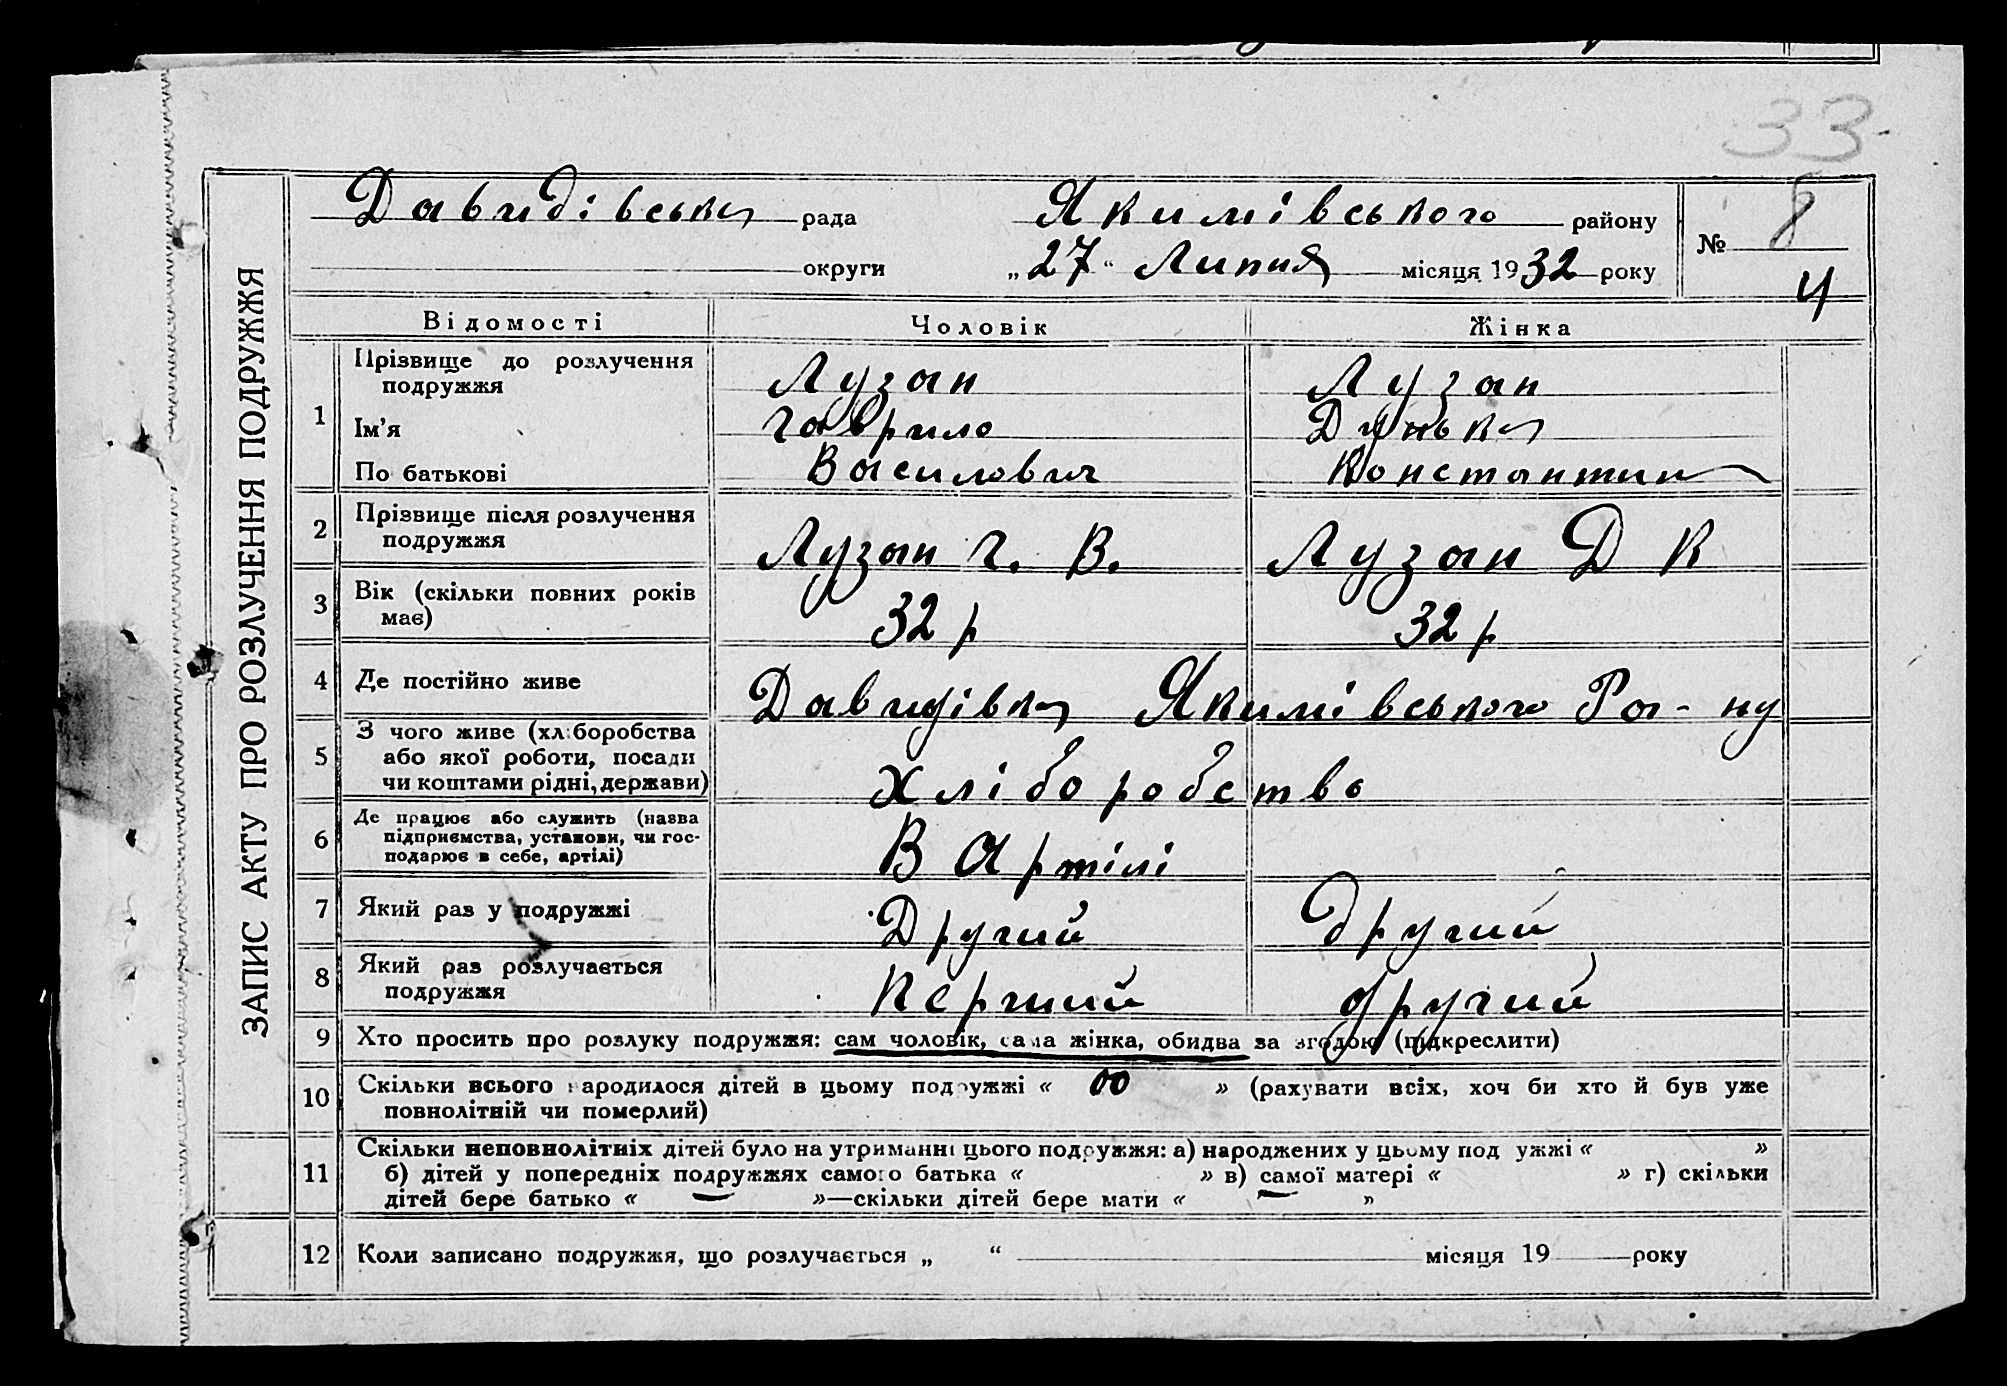 33
ЗАПИС АКТУ ПРО РОЗЛУЧЕННЯ ПОДРУЖЖЯ
Давидівська рада Якимівського району
№ 8
округи „27“ Липня місяця 1932 року
4
Відомості Чоловік Жінка
1
Прізвище до розлучення
подружжя Лузан Лузан
Ім'я Гаврило Дунька
По батькові Василович Константин
2 Прізвище після розлучення
подружжя Лузан Г. В. Лузан Д К
3 Вік (скільки повних років
має) 32 р 32 р
4 Де постійно живе Давидівка Якимівського Ра-ну
5 З чого живе (хліборобства
або якої роботи, посади
чи коштами рідні, держави) Хліборобство
6 Де працює або служить (назва
підприємства, установи, чи гос-
подарює в себе, артілі) В Артілі
7 Який раз у подружжі Другий другий
8 Який раз розлучається
подружжя Перший другий
9 Хто просить про розлуку подружжя: сам чоловік, сама жінка, обидва за згодою (підкреслити)
10 Скільки всього народилося дітей в цьому подружжі « 00 » (рахувати всіх, хоч би хто й був уже
повнолітній чи померлий)
11 Скільки неповнолітніх дітей було на утриманні цього подружжя: а) народжених у цьому подружжі « »
б) дітей у попередніх подружжях самого батька « » в) самої матері « » г) скільки
дітей бере батько « — »—скільки дітей бере мати « — »
12 Коли записано подружжя, що розлучається „ “ місяця 19 року